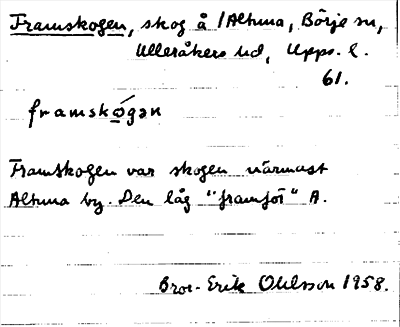 Framskogen, skog å /Altuna, Börje sn,
Ulleråkers hd, Upps. l.
61.
framskógən
Framskogen var skogen närmast
Altuna by. Den låg "framför" A.
Bror-Erik Ohlsson 1958.